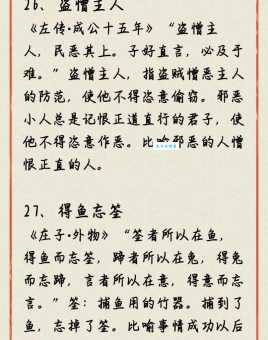 26、盗憎主人
《左传·成公十五年》“盗憎主
人，民恶其上。子好直言，必及于
难。”盗憎主人，指盗贼憎恶主人
的防范，使他不得恣意偷窃。邪恶
小人总是记恨正道直行的君子，使
他不得恣意作恶。比喻邪恶的人憎
恨正直的人。
27、得鱼忘筌
《庄子·外物》“筌者所以在鱼，
得鱼而忘筌，蹄者所以在兔，得兔
而忘蹄，言者所以在意，得意而忘
言。”筌：捕鱼用的竹器。捕到了
鱼，忘掉了筌。比喻事情成功以后